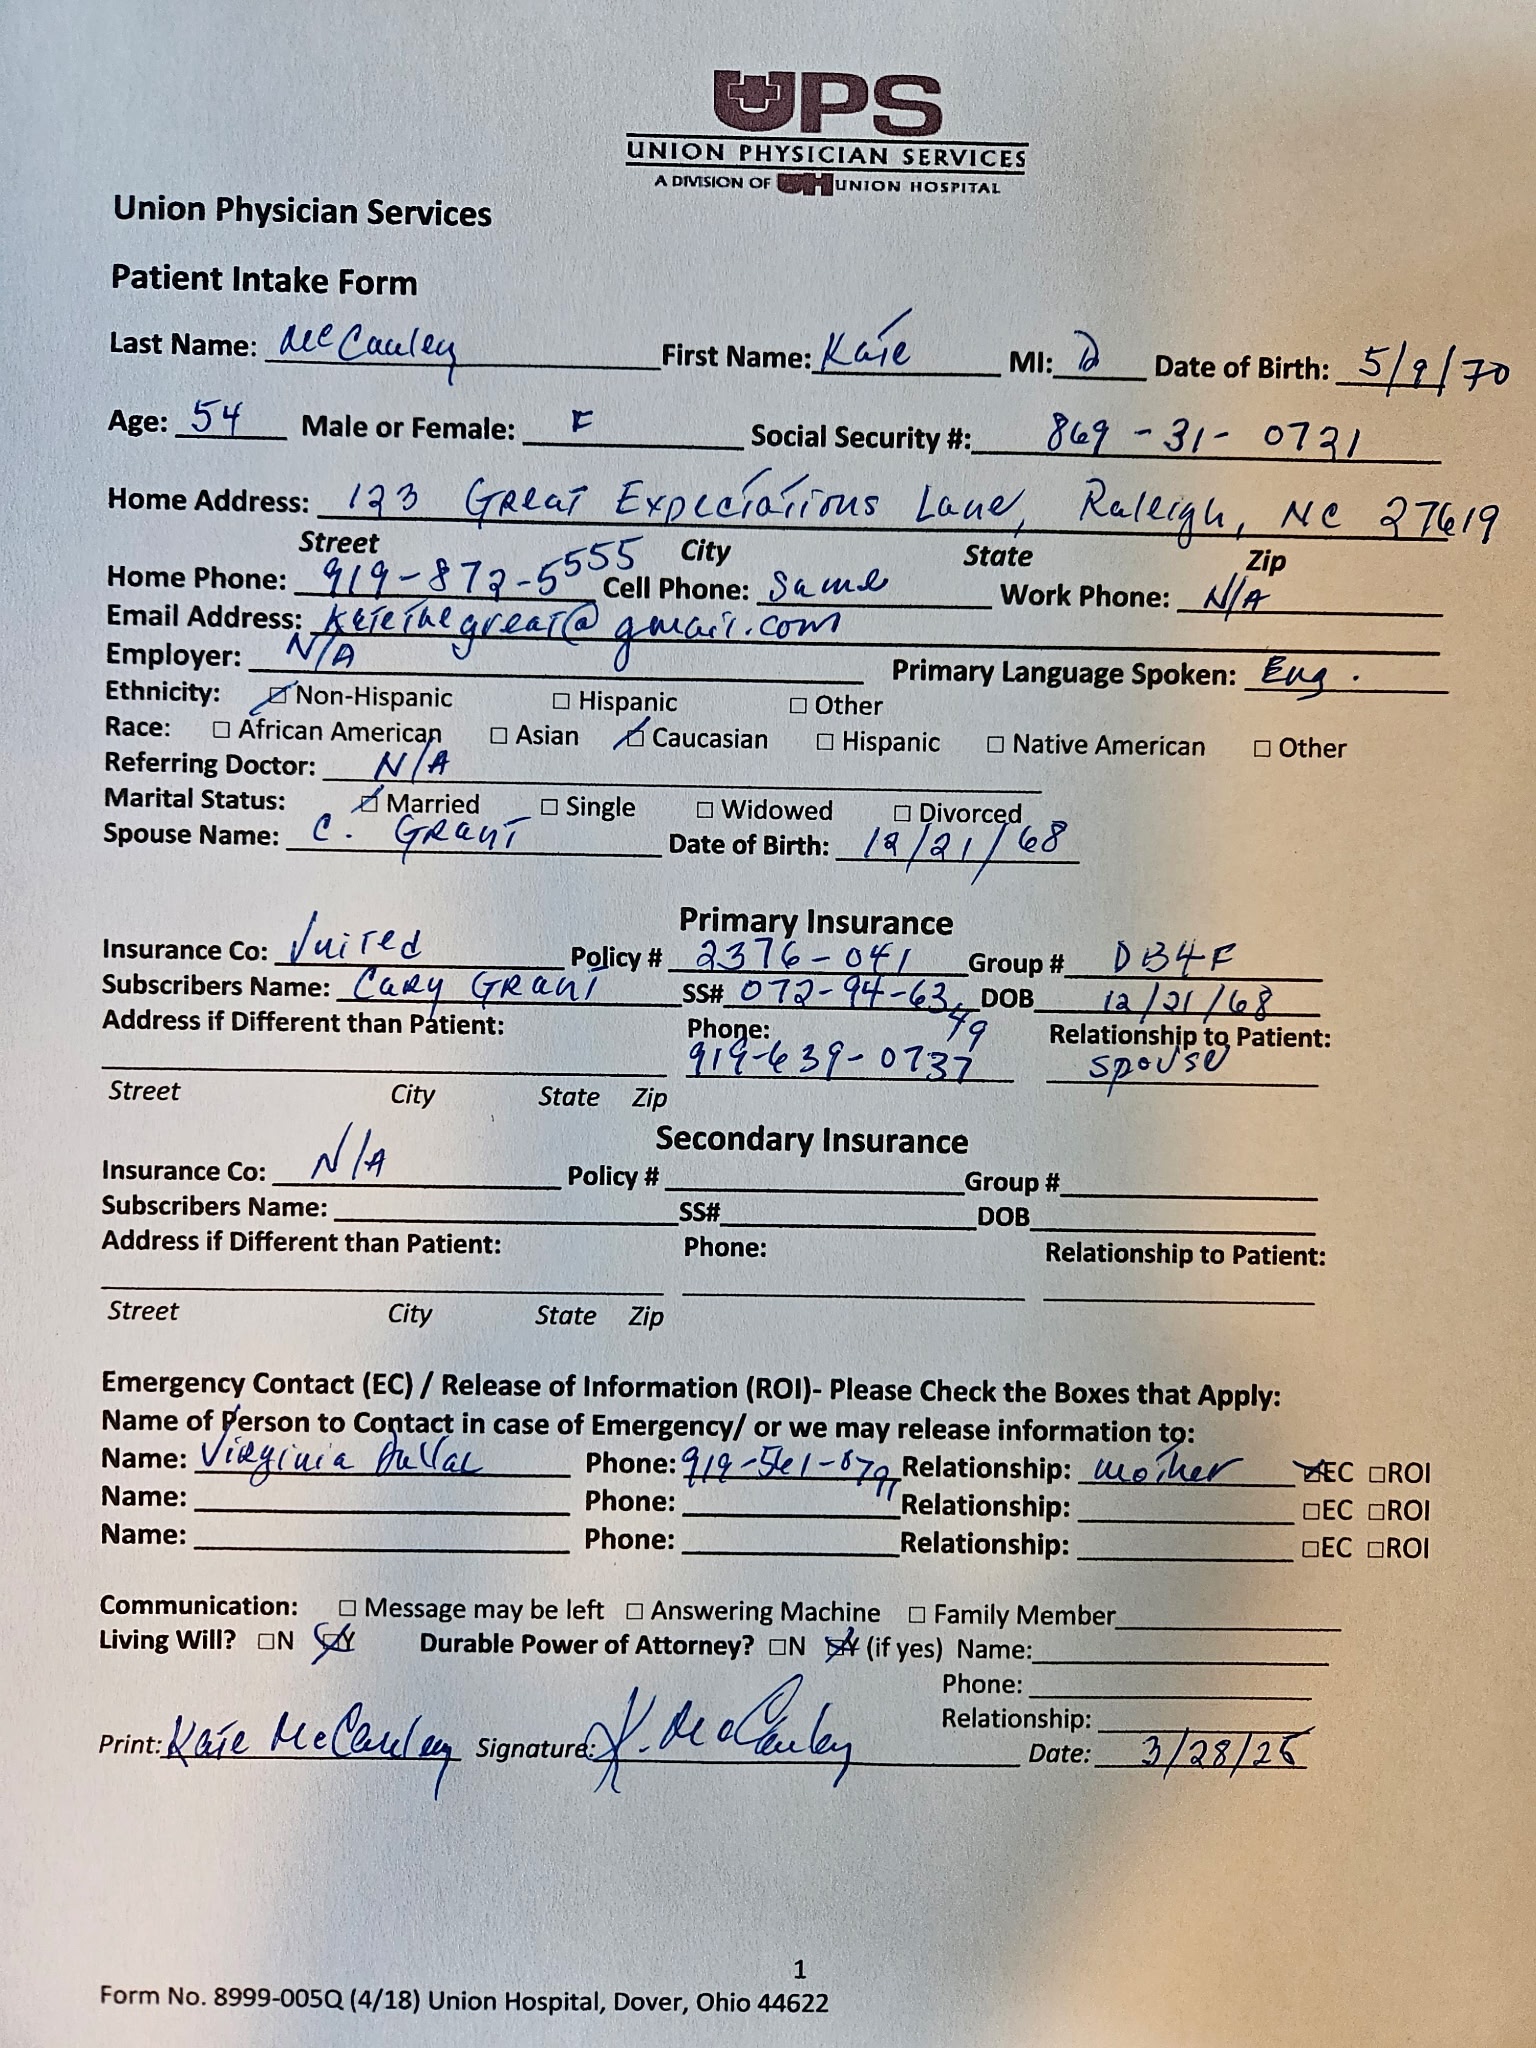 UPS
UNION PHYSICIAN SERVICES
A DIVISION OF UH UNION HOSPITAL
Union Physician Services
Patient Intake Form
Last Name: McCauley First Name: Kate MI: D Date of Birth: 5/9/70
Age: 54 Male or Female: F Social Security #: 869-31-0721
Home Address: 123 Great Expectations Lane, Raleigh, NC 27619
Street City State Zip
Home Phone: 919-872-5555 Cell Phone: Same Work Phone: N/A
Email Address: katethegreat@gmail.com
Employer: N/A Primary Language Spoken: Eng.
Ethnicity: ☑ Non-Hispanic ☐ Hispanic ☐ Other
Race: ☐ African American ☐ Asian ☑ Caucasian ☐ Hispanic ☐ Native American ☐ Other
Referring Doctor: N/A
Marital Status: ☑ Married ☐ Single ☐ Widowed ☐ Divorced
Spouse Name: C. Grant Date of Birth: 12/21/68
Primary Insurance
Insurance Co: United Policy # 2376-041 Group # DB4F
Subscribers Name: Cary Grant SS# 072-94-6349 DOB 12/21/68
Address if Different than Patient: Phone: 919-639-0737 Relationship to Patient: spouse
Street City State Zip
Secondary Insurance
Insurance Co: N/A Policy # Group #
Subscribers Name: SS# DOB
Address if Different than Patient: Phone: Relationship to Patient:
Street City State Zip
Emergency Contact (EC) / Release of Information (ROI)- Please Check the Boxes that Apply:
Name of Person to Contact in case of Emergency/ or we may release information to:
Name: Virginia DuVal Phone: 919-561-0797 Relationship: mother ☑EC ☐ROI
Name: Phone: Relationship: ☐EC ☐ROI
Name: Phone: Relationship: ☐EC ☐ROI
Communication: ☐ Message may be left ☐ Answering Machine ☐ Family Member
Living Will? ☐N ☑Y Durable Power of Attorney? ☐N ☑Y (if yes) Name:
Phone:
Relationship:
Print: Kate McCauley Signature: K. McCauley Date: 3/28/25
1
Form No. 8999-005Q (4/18) Union Hospital, Dover, Ohio 44622